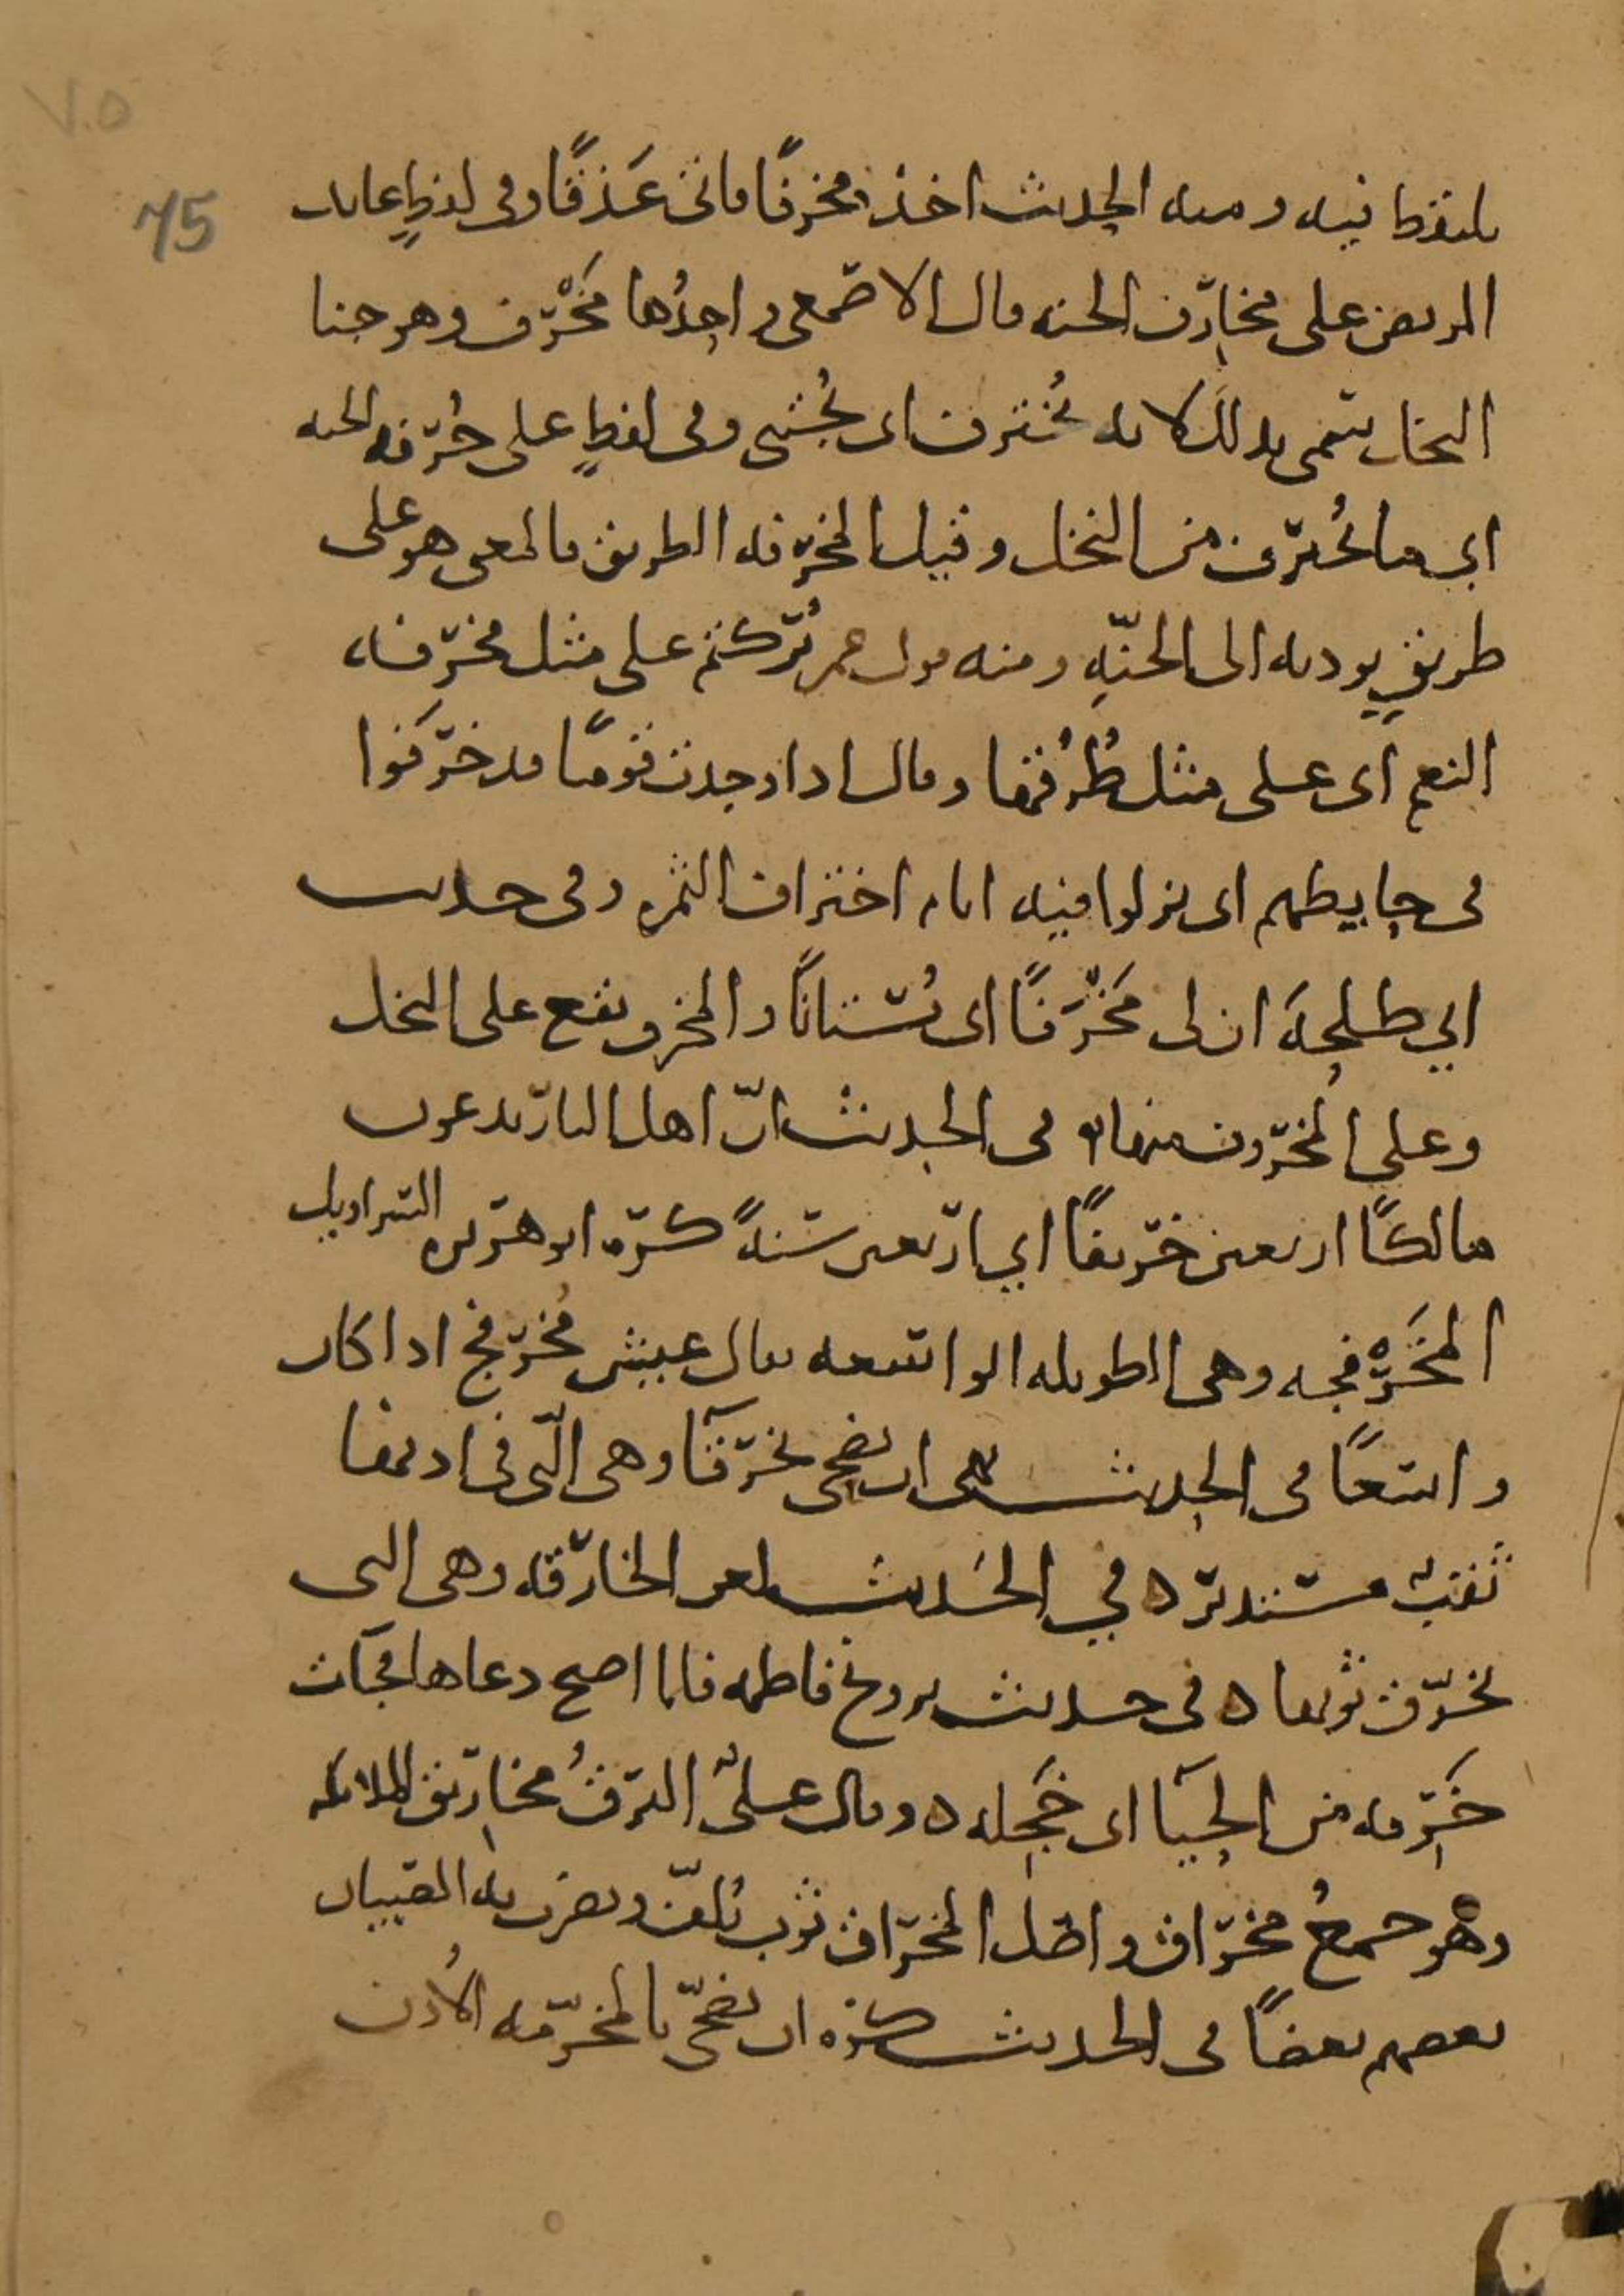 ٧٠٥
75
يلتقط فيه ومنه الحديث اخذ مخرفًا فاتى عَذقًا وفي لفظٍ عايد
المريض على مخارف الجنه قال الاصمعي واحدُها مَخْرَف وهو جنا
النخل سمى بذلك لانه يُخترف اى يُجتنى وفي لفظٍ على خُرفه الجنه
اي ما يُخترف من النخل وقيل المخرفه الطريق فالمعنى هو على
طريقٍ يوديه الى الجنّهِ ومنه قول عمر تُركتم على مثل مخرفه
النعم اى على مثل طُرُقها وقال اذا وجدت قومًا قد خرَفوا
في حايطهم اى نزلوا فيه ايام اختراف الثمره وفي حديث
ابي طلحهَ ان لى مَخْرَفًا اى بُستانًا والمخرف يقع على النخل
وعلى المخروف منها ٥ في الحديث انّ اهل النار يدعون
مالكًا اربعين خريفًا اي اربعين سَنهً كره ابو هريره السراويل
المُخَرْفجه وهى الطويله الواسعه يقال عيش مُخرفج اذا كان
واسعًا في الحديث نهى ان يضحى بخرقآ وهى الّتى في اذنها
ثقبٌ مستدير ٥ في الحديث لعن الخارقه وهى التى
تخرق ثوبها ٥ في حديث تزويج فاطمه فلما اصبح دعاها فجآت
خَرِقه من الحيَآ اى خَجِله ٥ وقال علىٌّ البرقُ مخاريق الملايكه
وهْو جمعُ مخراق واصل المخراق ثوب يُلفّ ويضرب به الصبيان
بعضهم بعضًا في الحديث كره ان يضحّى بالمخرّمه الاُذن